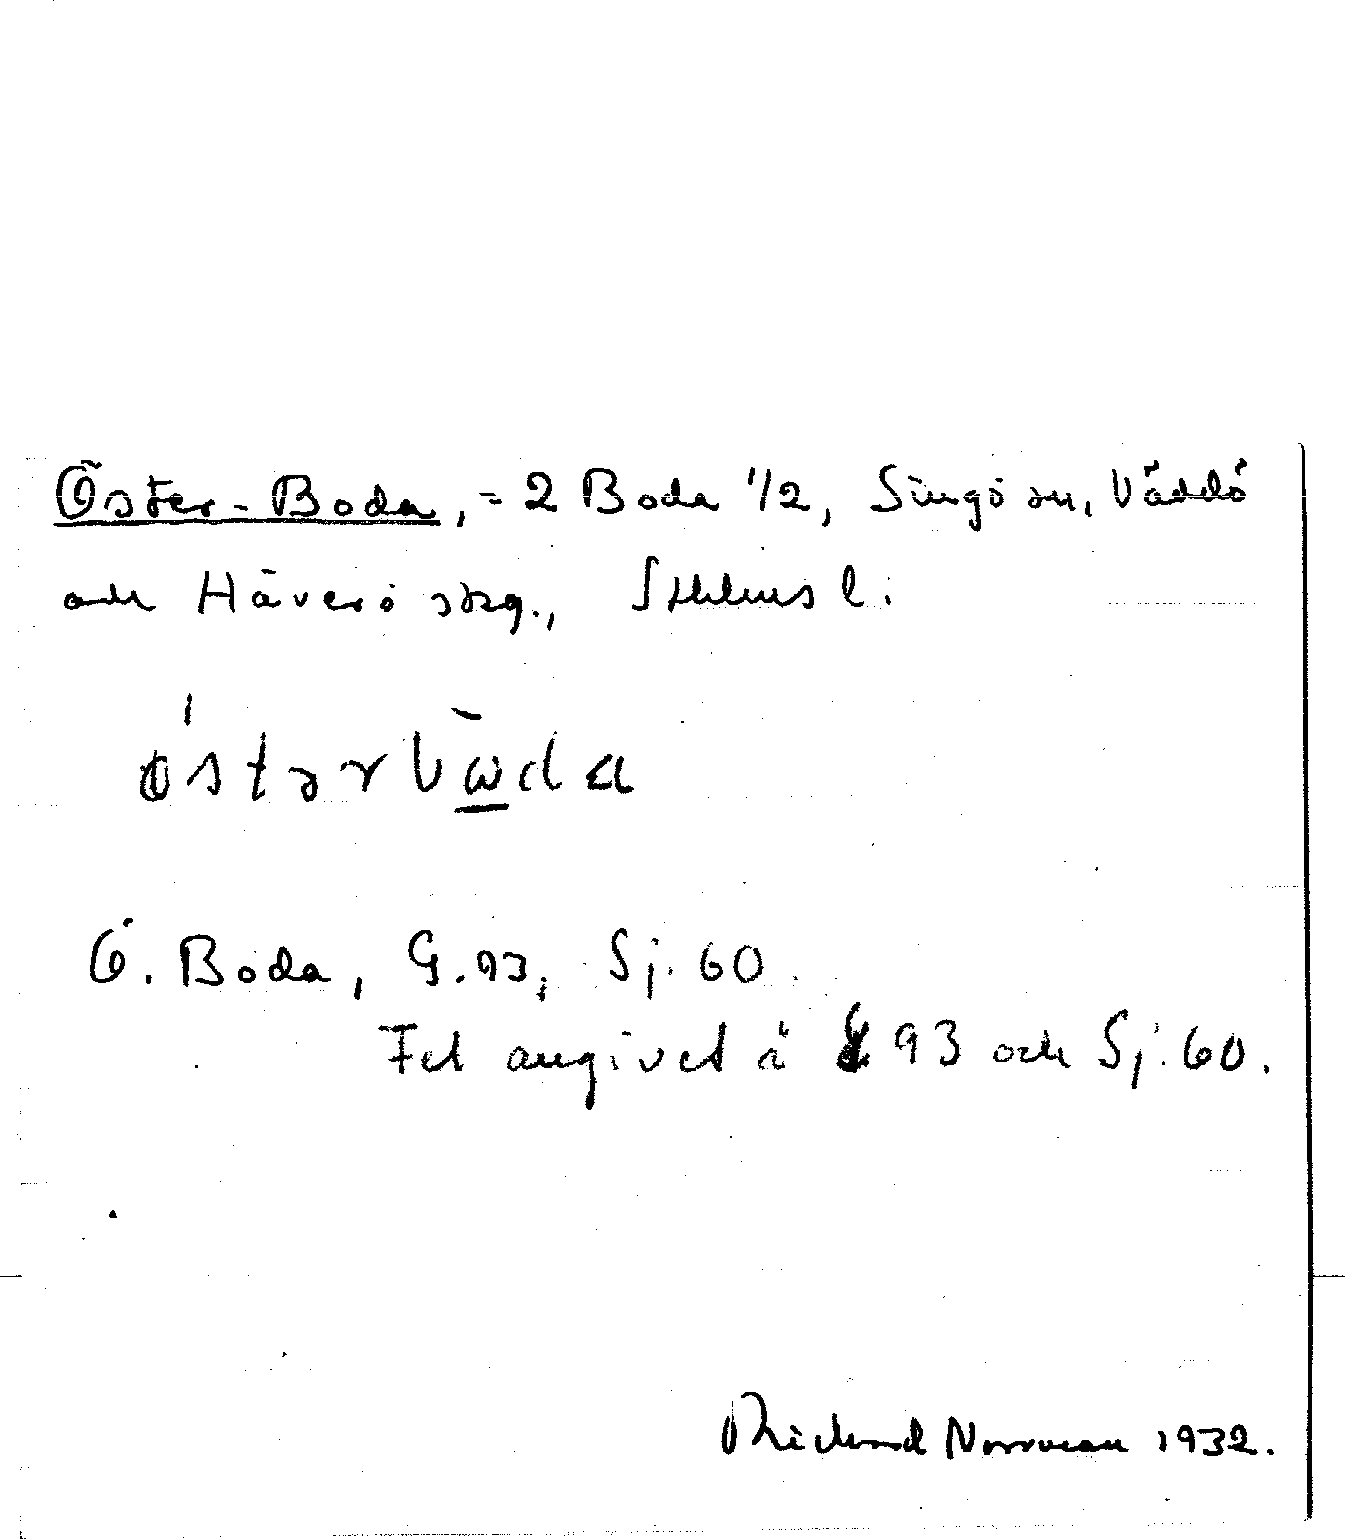 Öster-Boda, = 2 Boda 1/2, Singö sn, Väddö
och Häverö skg., Sthlms l.
ö́stərbὼ̲da
Ö. Boda, G. 93, Sj. 60.
Fel angivet å G 93 och Sj. 60.
Richard Norrman 1932.